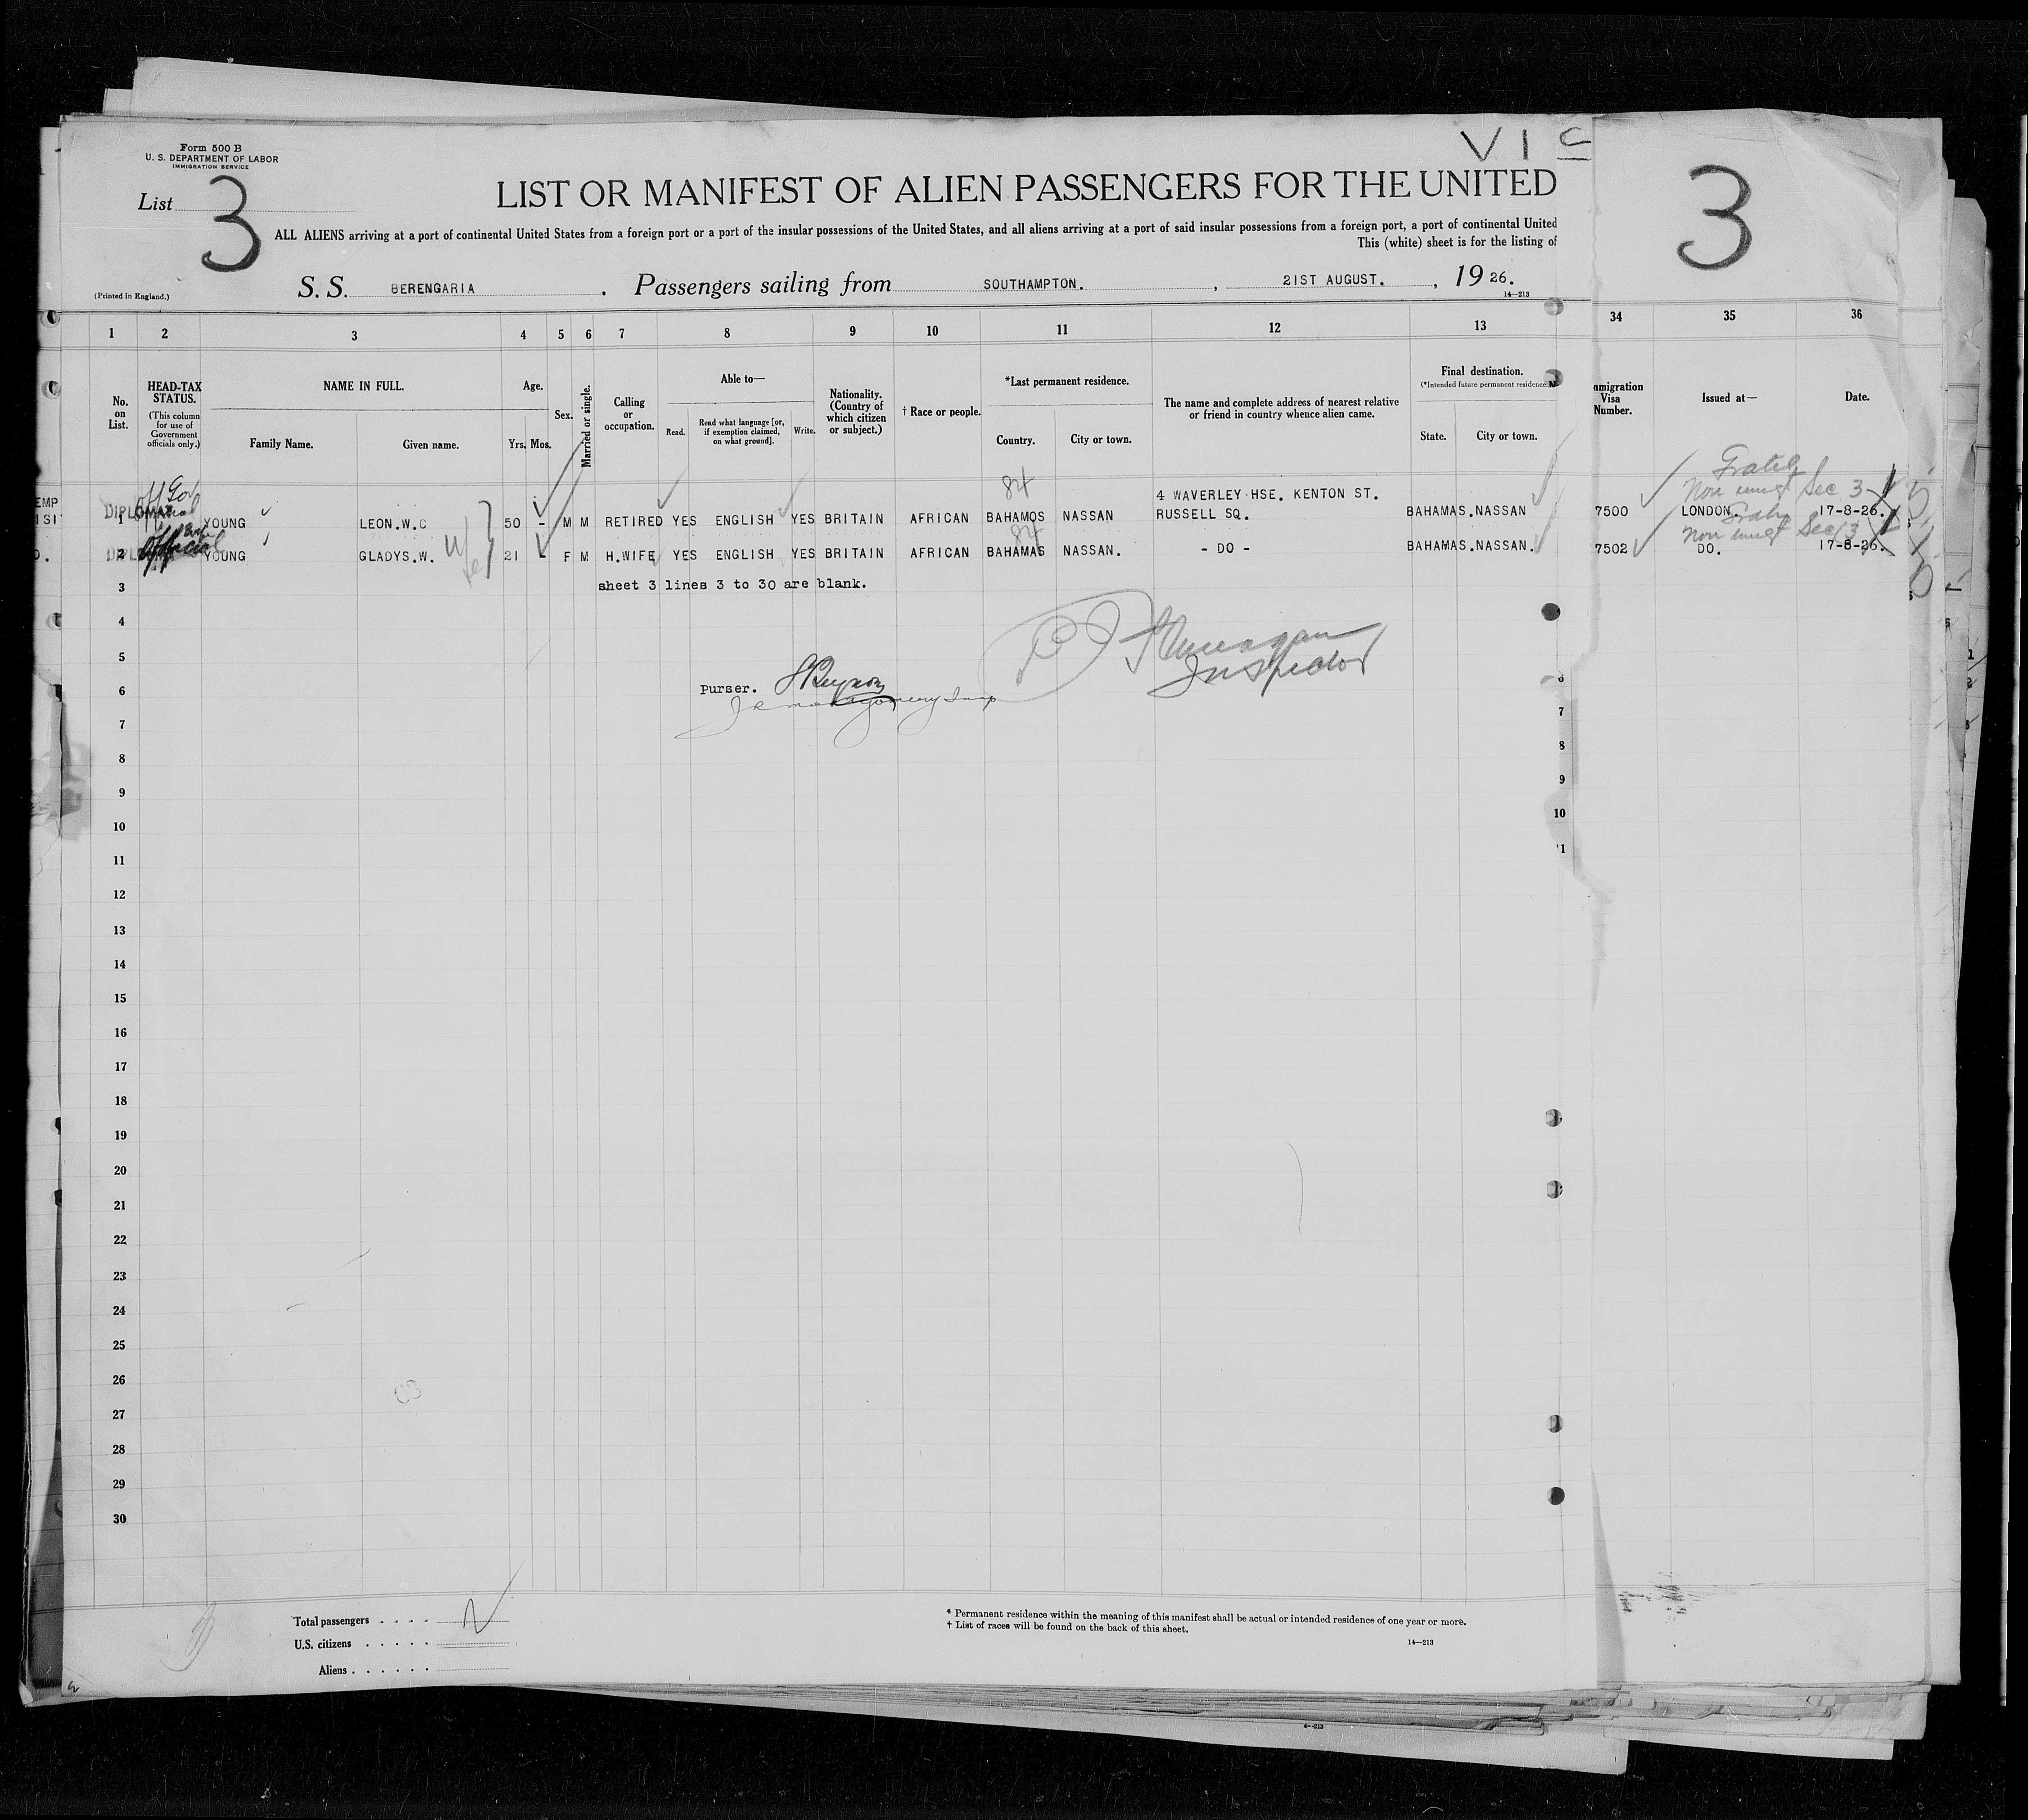 Form 500 B
U. S. DEPARTMENT OF LABOR
IMMIGRATION SERVICE
List 3
VI C
3
LIST OR MANIFEST OF ALIEN PASSENGERS FOR THE UNITED
ALL ALIENS arriving at a port of continental United States from a foreign port or a port of the insular possessions of the United States, and all aliens arriving at a port of said insular possessions from a foreign port, a port of continental United
This (white) sheet is for the listing of
(Printed in England.)
S. S. BERENGARIA . Passengers sailing from SOUTHAMPTON. , 21ST AUGUST. , 19 26.
14—213
1 2 3 4 5 6 7 8 9 10 11 12 13 34 35 36
No. on List.
HEAD-TAX STATUS.
(This column for use of Government officials only.)
NAME IN FULL.
Family Name. Given name.
Age.
Yrs. Mos.
Sex.
Married or single.
Calling or occupation.
Able to—
Read. Read what language [or, if exemption claimed, on what ground]. Write.
Nationality. (Country of which citizen or subject.)
† Race or people.
*Last permanent residence.
Country. City or town.
The name and complete address of nearest relative or friend in country whence alien came.
Final destination.
(*Intended future permanent residence.)
State. City or town.
mmigration Visa Number.
Issued at—
Date.
84
Non immgt Sec 3
1 DIPLOMAT YOUNG LEON.W.C 50 - M M RETIRED YES ENGLISH YES BRITAIN AFRICAN BAHAMOS NASSAN 4 WAVERLEY HSE. KENTON ST. RUSSELL SQ. BAHAMAS.NASSAN 7500 LONDON. 17-8-26.
84
Non immgt Sec 3
2 official YOUNG GLADYS.W. 21 F M H.WIFE YES ENGLISH YES BRITAIN AFRICAN BAHAMAS NASSAN. - DO - BAHAMAS.NASSAN. 7502 DO. 17-8-26.
3 sheet 3 lines 3 to 30 are blank.
4
5
Inspector
6 Purser.
7
8
9
10
11
12
13
14
15
16
17
18
19
20
21
22
23
24
25
26
27
28
29
30
6
7
8
9
10
Total passengers . . . .
U.S. citizens . . . . .
Aliens . . . . . .
* Permanent residence within the meaning of this manifest shall be actual or intended residence of one year or more.
† List of races will be found on the back of this sheet.
14—213